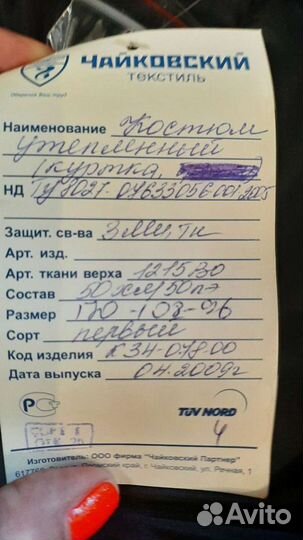 ЧАЙКОВСКИЙ
ТЕКСТИЛЬ
Оберегая Ваш труд
Наименование Костюм
утепленный
(куртка,
НД ТУ 8027-07633056-001-2005
Защит. св-ва ЗМи, Тн
Арт. изд.
Арт. ткани верха 1215ВО
Состав 50хл/50пэ
Размер 170-108-96
Сорт первый
Код изделия К34-048-00
Дата выпуска 04.2009г
РС
TÜV NORD
4
Изготовитель: ООО фирма "Чайковский Партнер"
Пермский край, г. Чайковский, ул. Речная, 1
Avito